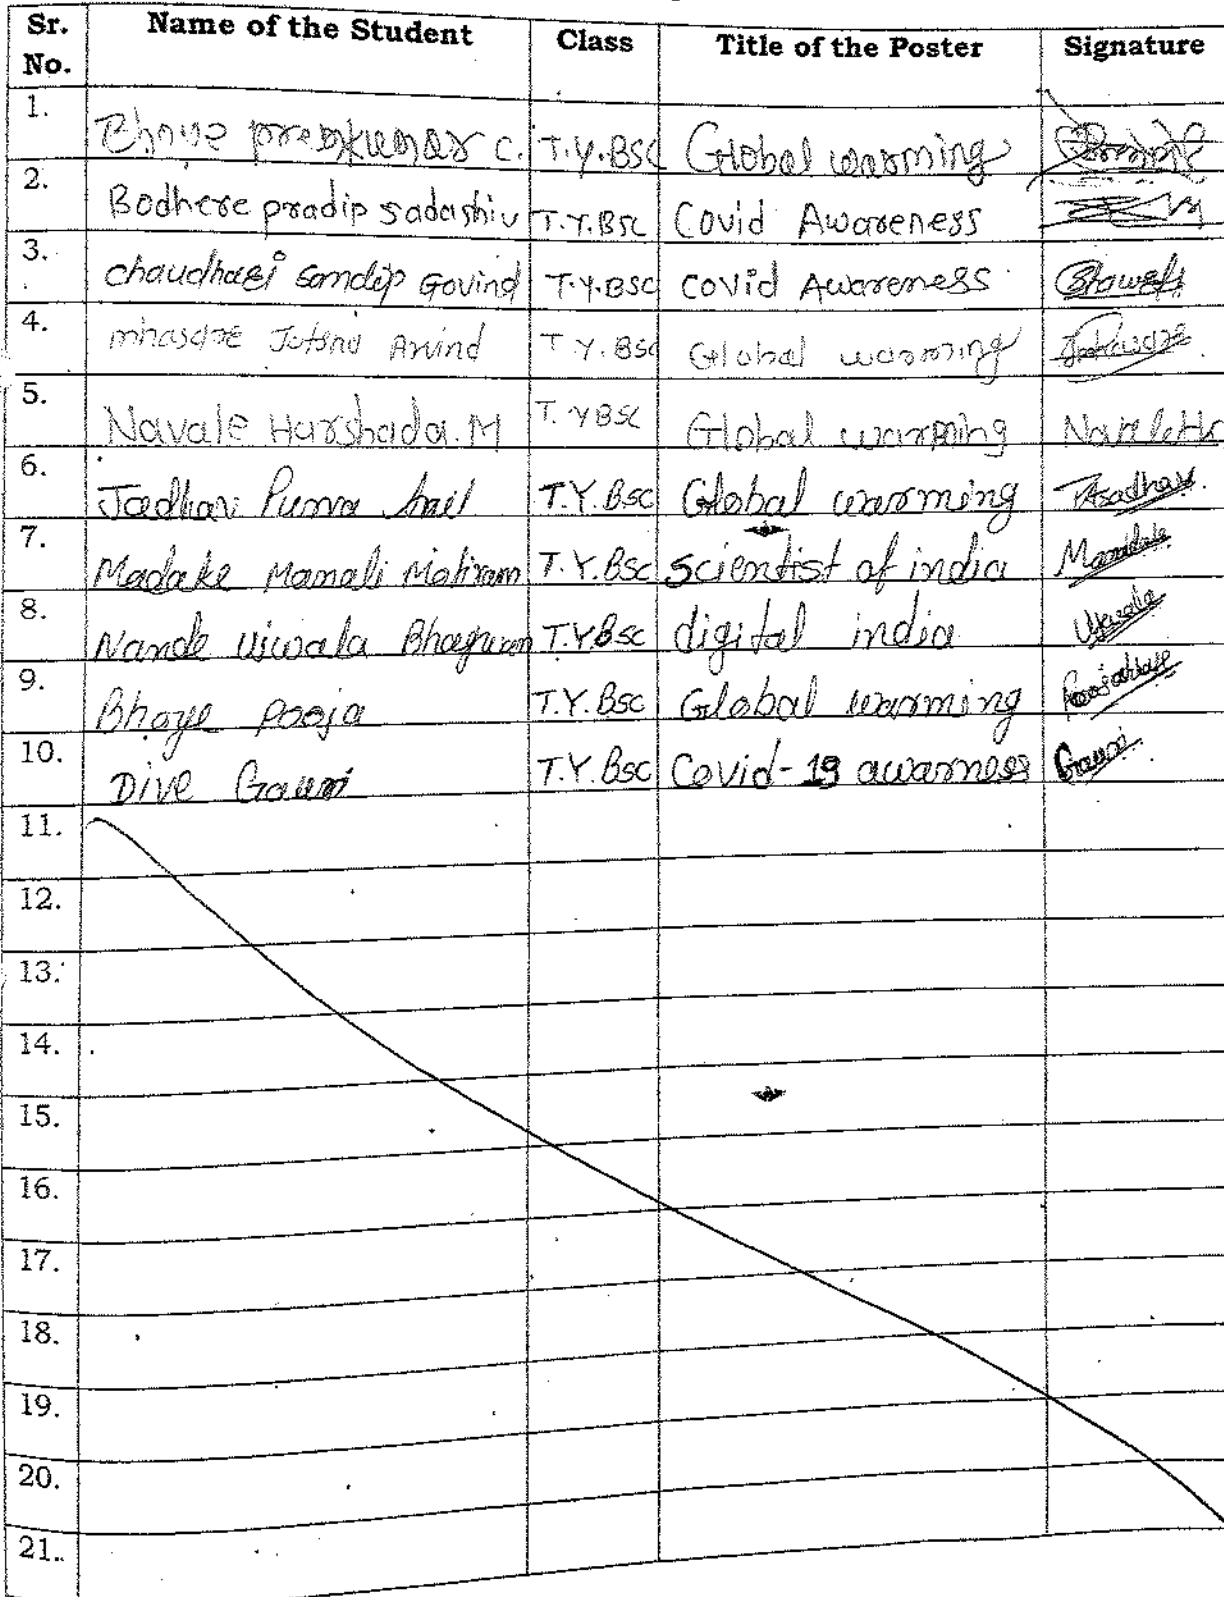 Sr. No. Name of the Student Class Title of the Poster Signature
1. Bhoye premkumar C. T.Y.BSC Global warming
2. Bodhere pradip sadashiv T.Y.BSC Covid Awareness
3. chaudhari Sandip Govind T.Y.BSC covid Awareness
4. Arvind T.Y.BSC Global warming
5. Navale Harshada.M T.YBSC Global warming
6. Jadhav Purva Anil T.Y.Bsc Global warming Jadhav.
7. Madake Manali Motiram T.Y.Bsc scientist of india
8. Nande Ujwala Bhagwan T.Y.Bsc digital india Ujwala
9. Bhoye Pooja T.Y.Bsc Global warming
10. Dive Gauri T.Y.Bsc Covid-19 awarness Gauri
11.
12.
13.
14.
15.
16.
17.
18.
19.
20.
21.